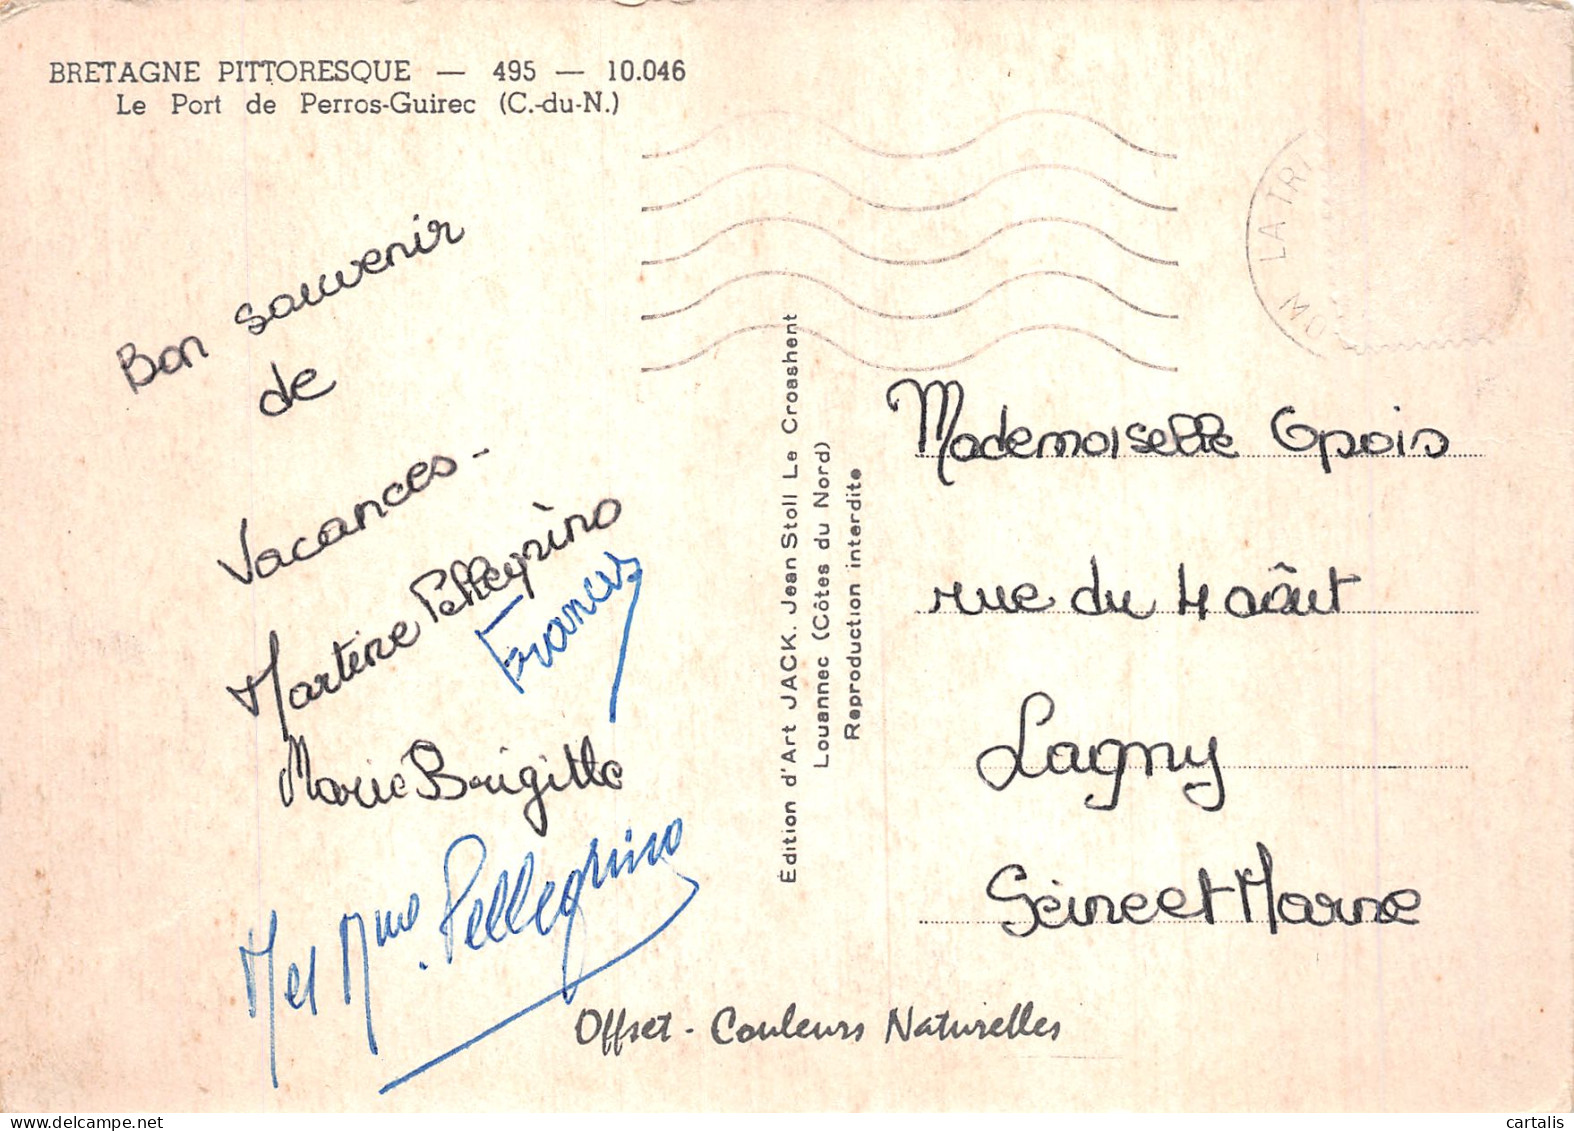 BRETAGNE PITTORESQUE — 495 — 10.046
Le Port de Perros-Guirec (C.-du-N.)
LA TRI
MO
Bon souvenir
de
Vacances -
Martine Pellegrino
Francis
Marie Brigitte
M et Mme. Pellegrino
Édition d'Art JACK. Jean Stoll Le Croashent
Louannec (Côtes du Nord)
Reproduction interdite
Mademoiselle Opois
rue du 4 août
Lagny
Seine et Marne
Offset - Couleurs Naturelles
cartalis